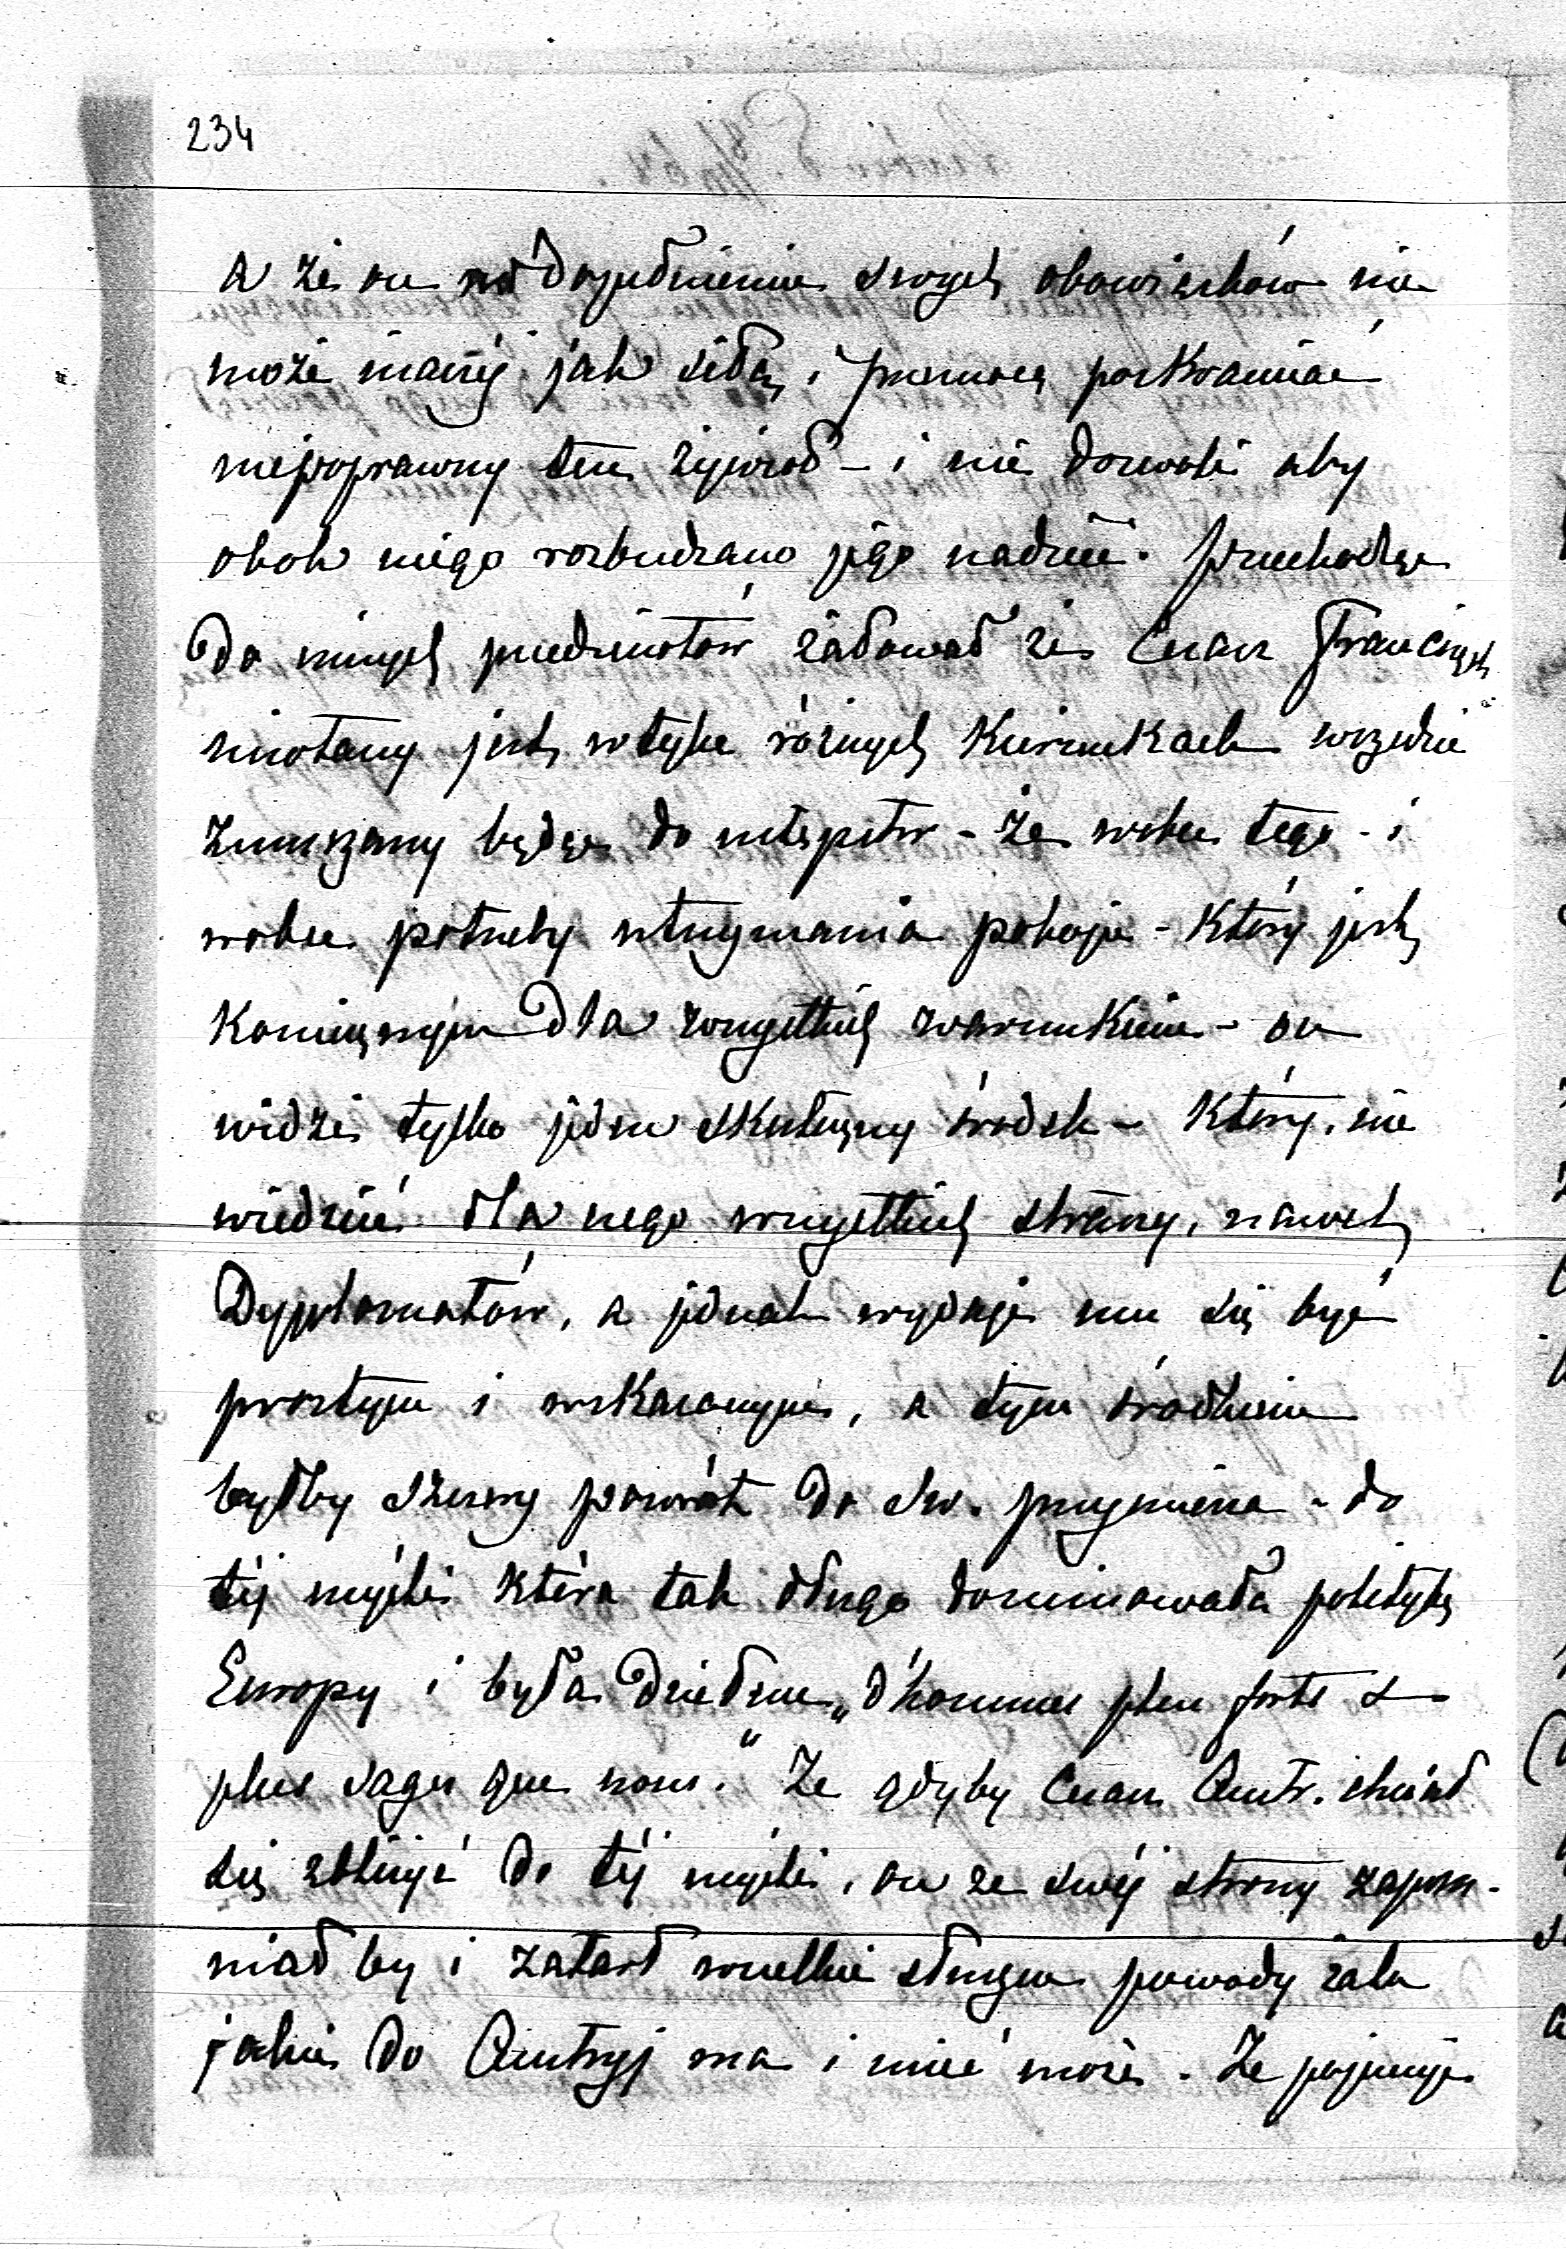 234
a że on w dopełnieniu swoich obowiązków nie
może inaczéj jak siłą i przemocą poskramiać
niepoprawny ten żywioł – i nie dozwoli aby
obok niego rozbudzano jego nadzieie. Przechodząc
do innych przedmiotów żałował że Cesarz Franciszek
miotany jest w tylu różnych kierunkach wszędzie
zmuszony będąc do ustępstw – że wobec tego – i
wobec potrzeby utrzymania pokoju – który jest
koniecznym dla wszystkich warunkiem – on
widzi tylko jeden skuteczny środek – który, nie
wiedzieć dla czego wszystkich straszy, nawet
Dyplomatów, a jednak wydaje mu się być
prostym i wskazanym, a tym środkiem
byłby szczery powrót do Św. przymierza – do
téj myśli która tak długo dominowała politykę
Europy i była dziełem „d'hommes plus forts &
plus sages que nous." Że gdyby Cesarz Austr. chciał
się zbliżyć do téj myśli, on ze swéj strony zapom-
niałby i zatarł wszelkie słuszne powody żalu
jakie do Austryj ma i mieć może. Że pojmuje